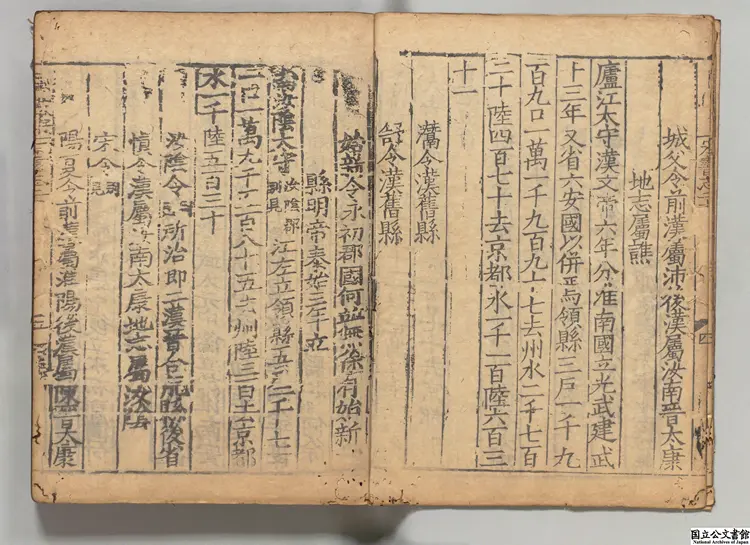 城父令前漢屬沛後漢屬汝南晉太康
地志屬譙
廬江太守漢文帝六年分淮南國立光武建武
十三年又省六安國以併焉領縣三戶一千九
百九口一萬一千九百九十七去州水二千七百
二十陸四百七十去京都水一千一百陸六百三
十一
灊令漢舊縣
舒令漢舊縣
始新令永初郡國何並無徐有始新
縣明帝泰始三年立
南汝陰太守汝陰郡別見江左立領縣五戶二千七
口一萬九千五百八十五去州陸三百京都
水一千陸五百三十
汝陰令所治即二漢晉合肥縣後省
慎令漢屬汝南太康地志屬汝陰
宋令別見
陽夏令前漢屬淮陽後漢屬陳晉太康
国立公文書館
National Archives of Japan